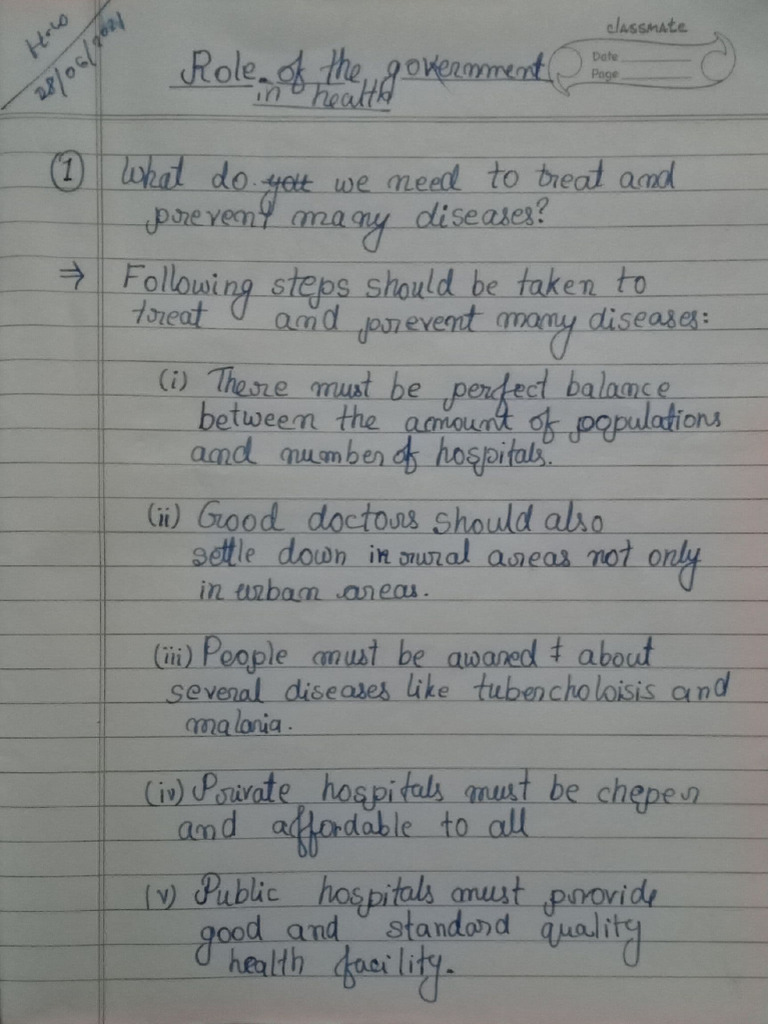 H.W
28/06/2021
classmate
Date
Page
Role of the government
in health
1 What do you we need to treat and
prevent many diseases?
⇒ Following steps should be taken to
treat and prevent many diseases:
(i) There must be perfect balance
between the amount of populations
and number of hospitals.
(ii) Good doctors should also
settle down in rural areas not only
in urban areas.
(iii) People must be awared about
several diseases like tubercholoisis and
malaria.
(iv) Private hospitals must be cheper
and affordable to all
(v) Public hospitals must provide
good and standard quality
health facility.